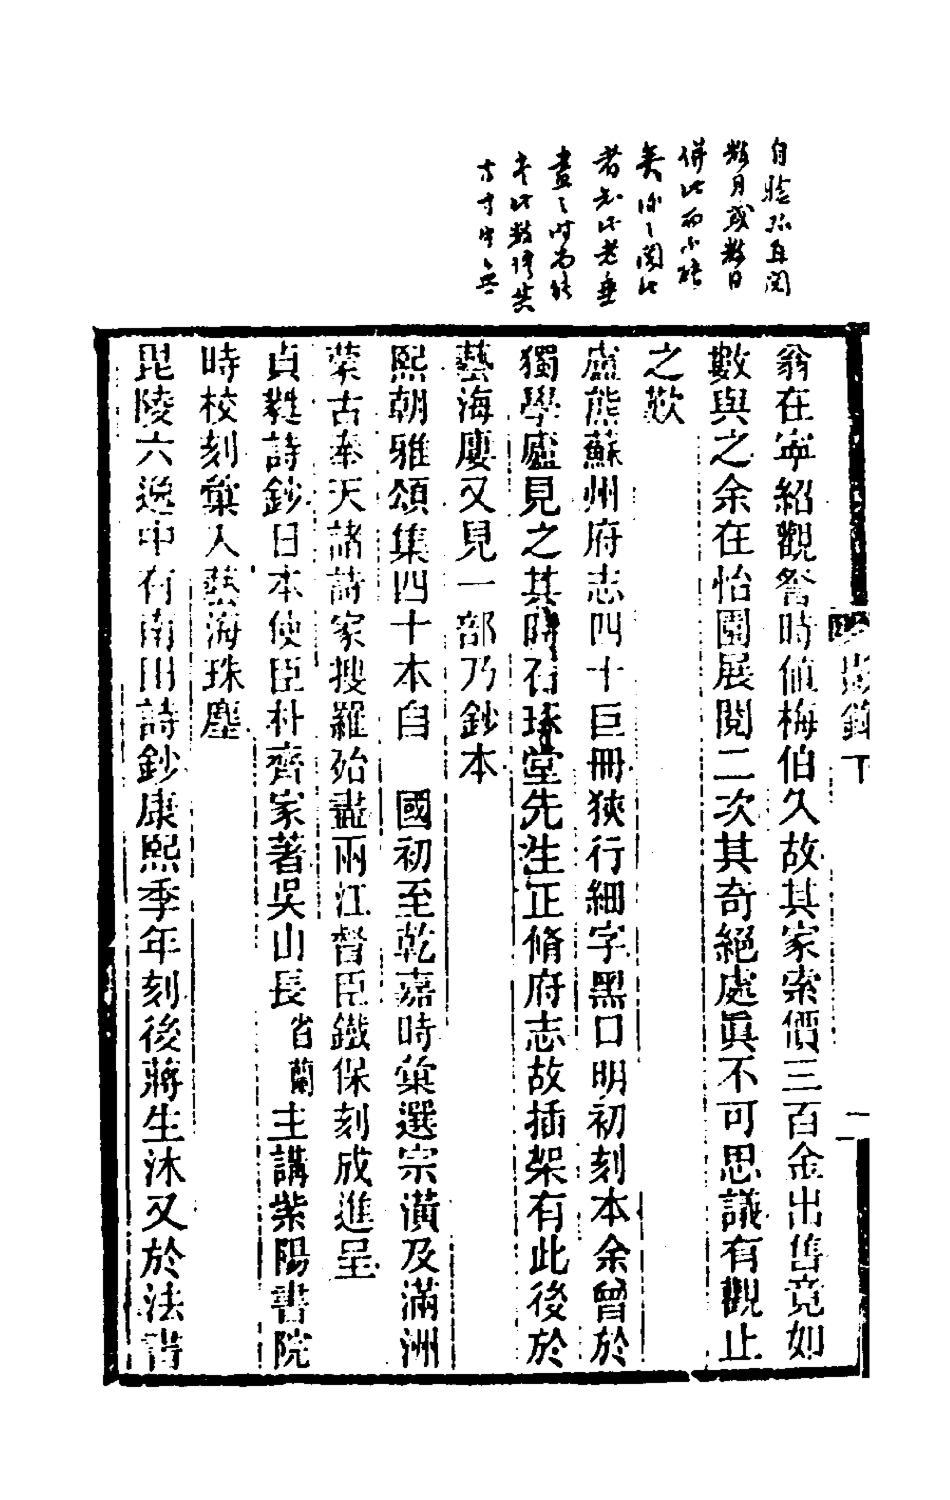 翁在寧紹觀詧時値梅伯久故其家索價三百金出售竟如
數與之余在怡園展閱二次其奇絕處眞不可思議有觀止
之歎
盧熊蘇州府志四十巨冊狹行細字黑口明初刻本余曾於
獨學廬見之其時石琢堂先生正脩府志故插架有此後於
藝海廔又見一部乃鈔本
熙朝雅頌集四十本自　國初至乾嘉時彙選宗潢及滿洲
蒙古奉天諸詩家搜羅殆盡兩江督臣鐵保刻成進呈
貞蕤詩鈔日本使臣朴齊家著吳山長省蘭主講紫陽書院
時校刻彙入藝海珠塵
毘陵六逸中有南田詩鈔康熙季年刻後蔣生沐又於法書
自
數月或數日
併此而
矣
者知此老垂
盡之時尚能